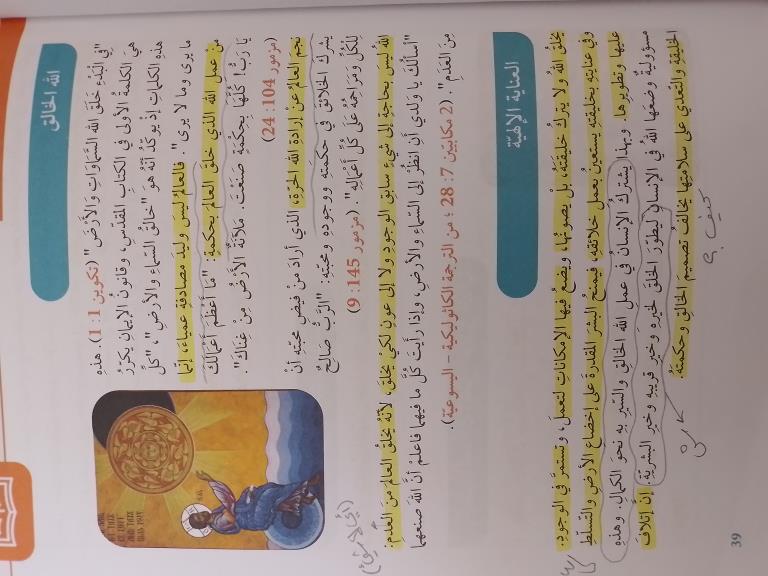 الله الخالق
"فِي الْبَدْءِ خَلَقَ اللهُ السَّمَاوَاتِ وَالْأَرْضَ" (تكوين 1: 1). هذِهِ
هِيَ الْكَلِمَةُ الأُولى في الكِتابِ المُقَدَّسِ، وقانونُ الإيمانِ يُكَرِّرُ
هذِهِ الكلماتِ إذ يُؤَكِّدُ أنَّهُ هو "خالقُ السَّماءِ والأرضِ"، "كلِّ
ما يرى وما لا يرى". فالعالمُ ليسَ وليدَ مصادفةٍ عمياءَ، إنَّما
من عملِ اللهِ الذي خلقَ العالمَ بحكمةٍ: "مَا أَعْظَمَ أَعْمَالَكَ
يَا رَبُّ! كُلَّهَا بِحِكْمَةٍ صَنَعْتَ. مَلآنَةٌ الأَرْضُ مِنْ غِنَاكَ".
(مزمور 104: 24)
نجمَ العالمُ عنْ إرادةِ اللهِ الحرّةِ، الذي أرادَ مِنْ فيضِ محبَّتِه أنْ
يشركَ الخلائقَ في حكمتِه ووجودِه ومحبّتِه: "الرَّبُّ صَالِحٌ
لِلْكُلِّ وَمَرَاحِمُهُ عَلَى كُلِّ أَعْمَالِهِ". (مزمور 145: 9)
اللهُ ليسَ بحاجةٍ إلى شيءٍ سابقِ الوجودِ ولا إلى عونٍ لكي يخلقَ، لأنّهُ يخلقُ العالمَ منَ العَدَمِ:
"أسألُكَ يا ولدي أنِ انظُرْ إلى السَّماءِ والأرضِ، وإذا رأيتَ كُلَّ ما فيهما فاعلمْ أنَّ اللهَ صنعَهما
مِنَ العَدَمِ". (2 مكابيّين 7: 28 ؛ من الترجمة الكاثوليكية - اليسوعيّة).
العناية الإلهيّة
يخلقُ اللهُ ولا يتركُ خليقتَهُ، بلْ يصونُها، ويضعُ فيها الإمكاناتِ لتعملَ، وتستمرَّ في الوجودِ.
وفي عنايتِه بخليقتِهِ يستعينُ بعملِ خلائقِه، فيمنحُ البشرَ القدرةَ على إخضاعِ الأرضِ والتّسلّطِ
عليها وتطويرِها. وبهذا يشتركُ الإنسانُ في عملِ اللهِ الخالقِ والسّيرِ بهِ نحوَ الكمالِ. وهذهِ
مسؤوليّةٌ وضعَها اللهُ في الإنسانِ ليطوّرَ الخلقَ لخيرِهِ وخيرِ قريبِهِ وخيرِ البشريّةِ. إنَّ إتلافَ
الخليقةِ والتّعدّيَ على سلامتِها يخالفُ تصميمَ الخالقِ وحكمتَهُ.
كيف؟
39